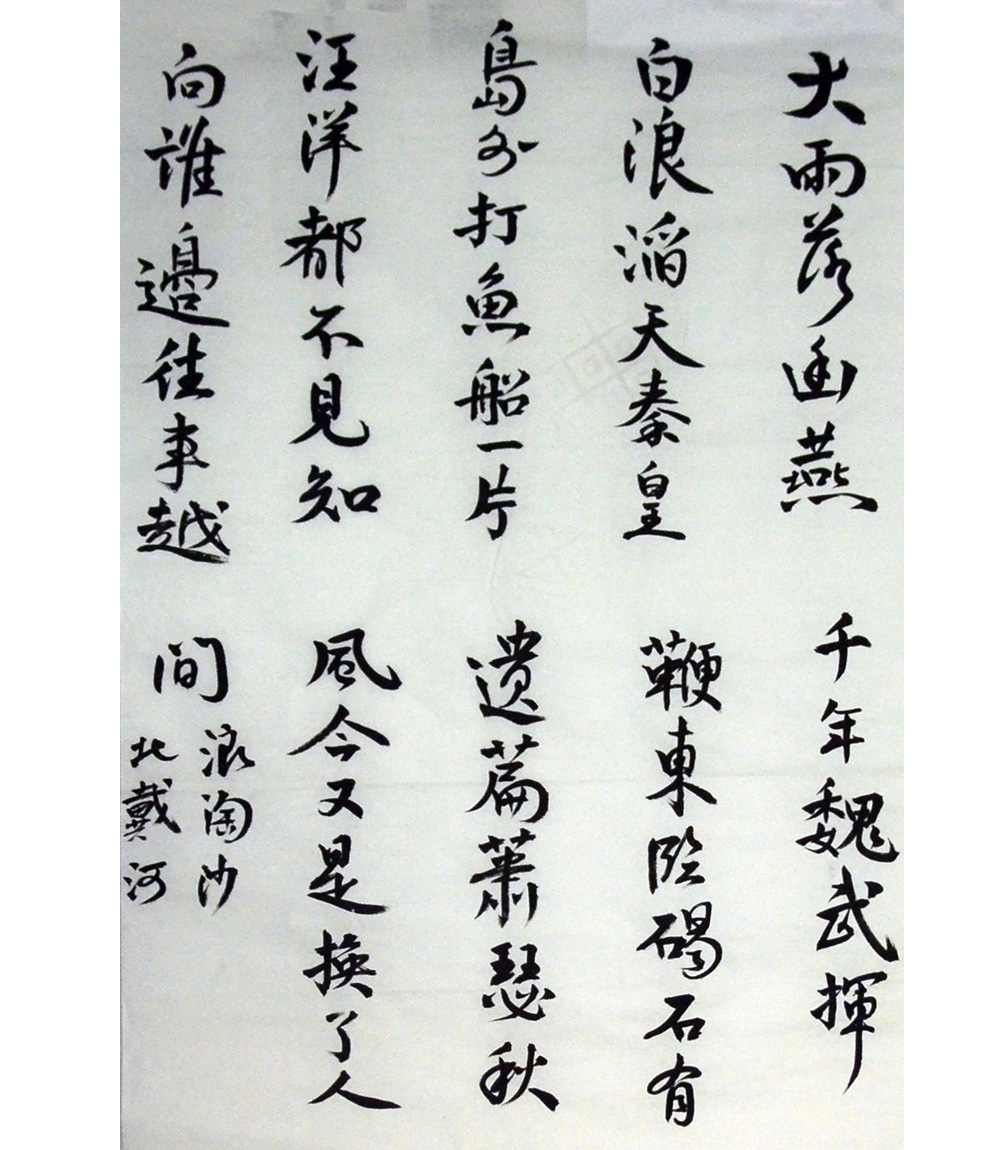 大雨落幽燕
白浪滔天秦皇
島外打魚船一片
汪洋都不見知
向誰邊往事越
千年魏武揮
鞭東臨碣石有
遺篇蕭瑟秋
風今又是換了人
間
浪淘沙
北戴河